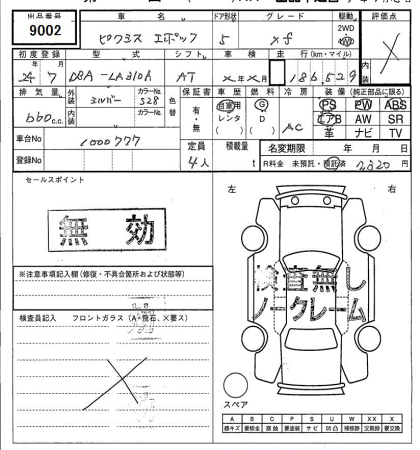 出品番号 車名 ドア形状 グレード 駆動 評価点
9002 ピクシス エポック 5 xf 2WD 4WD 内
初度登録 型式 シフト 車検 走行(km・マイル)
24 7 DBA-LA310A AT X年X月 186,529
排気量 外装 カラーNo. 色替 保証書 車歴 燃料 冷房 装備(純正部品に限る)
660c.c. シルバー S28 有・無 自家用 G AC PS PW ABS
内装 カラーNo. レンタ D エアB AW SR
( ) ( ) 革 ナビ TV
車台No 1000777 定員 積載量 名変期限 年 月 日
登録No 4人 t R料金 未預託・預託済
セールスポイント 左 右
無効
※注意事項記入欄(修復・不具合箇所および状態等)
検査無し
ノークレーム
検査員記入 フロントガラス(A・飛石、X要ス)
スペア
A B C P S U W X XX
線キズ 要板金 腐蝕 要塗装 サビ 凹凸 補修跡 交換要 交換済